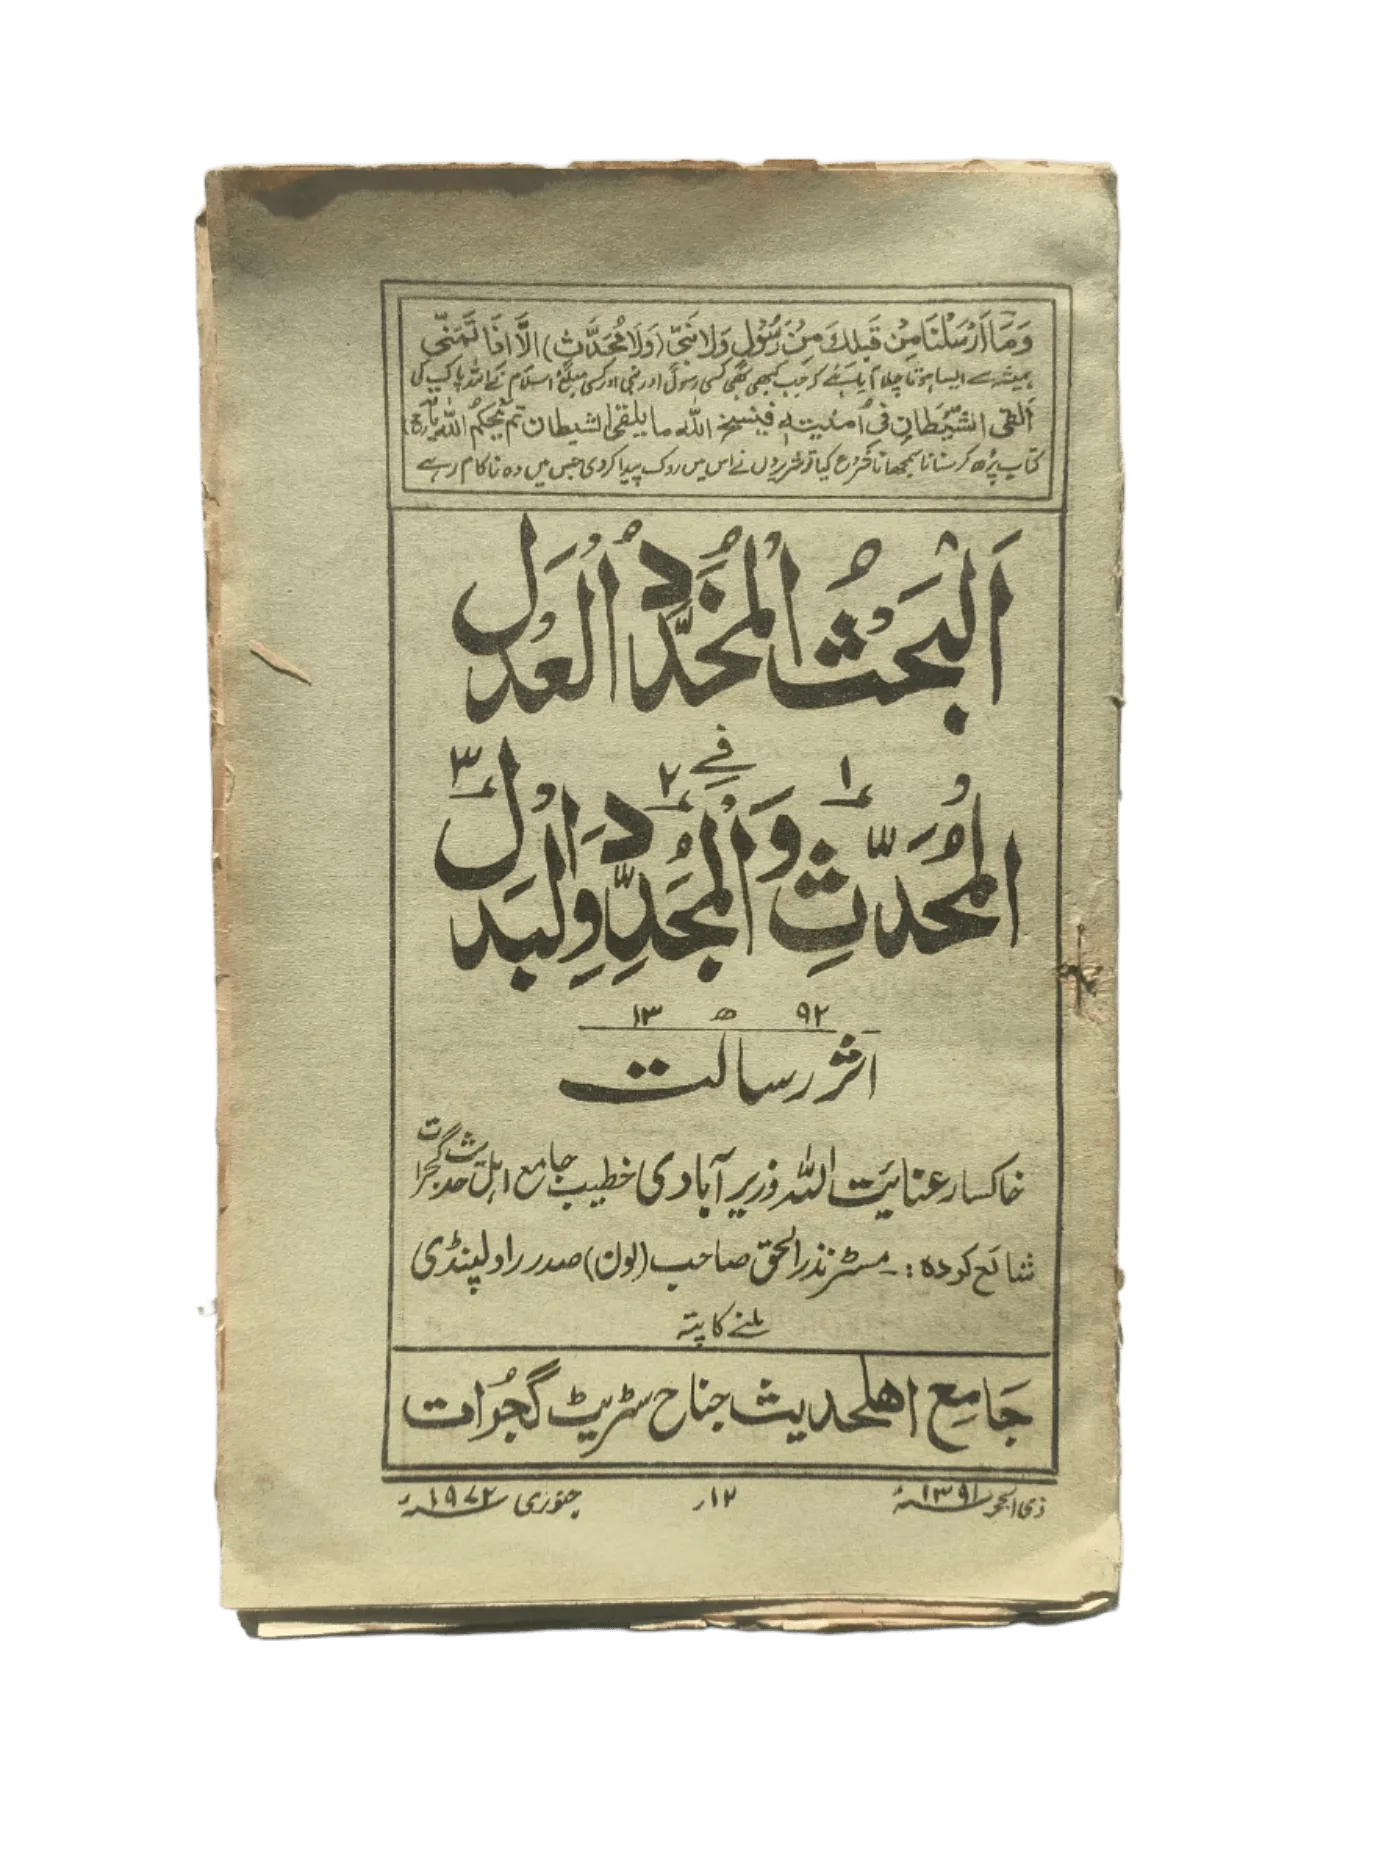 وَمَا اَرْسَلْنَا مِنْ قَبْلِكَ مِنْ رَّسُوْلٍ وَّلَا نَبِيٍّ (وَلَا مُحَدَّثٍ) اِلَّا اِذَا تَمَنّٰی
ہمیشہ سے ایسا ہوتا چلا آیا ہے کہ جب کبھی بھی کسی رسول اور نبی اور کسی مبلغ اسلام نے اللہ پاک کی
اَلقی الشَّیْطَانِ فی اُمْنیتہٖ فینسخ اللّٰہ ما یلقی الشیطان ثم یُحکمُ اللّٰہ
کتاب پڑھ کر سنانا سمجھانا شروع کیا تو شریروں نے اس میں روک پیدا کر دی جس میں وہ ناکام رہے
اَلْبَحْثُ الْمُحَدَّدُ الْعُدُلَ
فِے
الْمُحَدَّثِ ۱ وَالْمُجَدِّدِ ۲ وَالْبَدَلِ ۳
۱۳ ھ ۹۲
اَثر رسالت
خاکسار عنائیت اللہ وزیرآبادی خطیب جامع اہلحدیث گجرات
شائع کردہ :۔ مسٹر نذر الحق صاحب (لون) صدر راولپنڈی
ملنے کا پتہ
جَامِع اھلحدیث جناح سٹریٹ گجُرات
ذی الحجہ ۱۳۹۱ھ ۱۲ر جنوری ۱۹۷۲ء